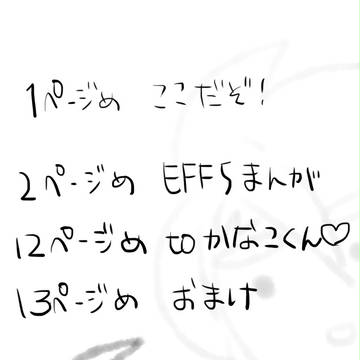 1ページめ ここだぞ!
2ページめ EFF5まんが
12ページめ toかなこくん♡
13ページめ おまけ